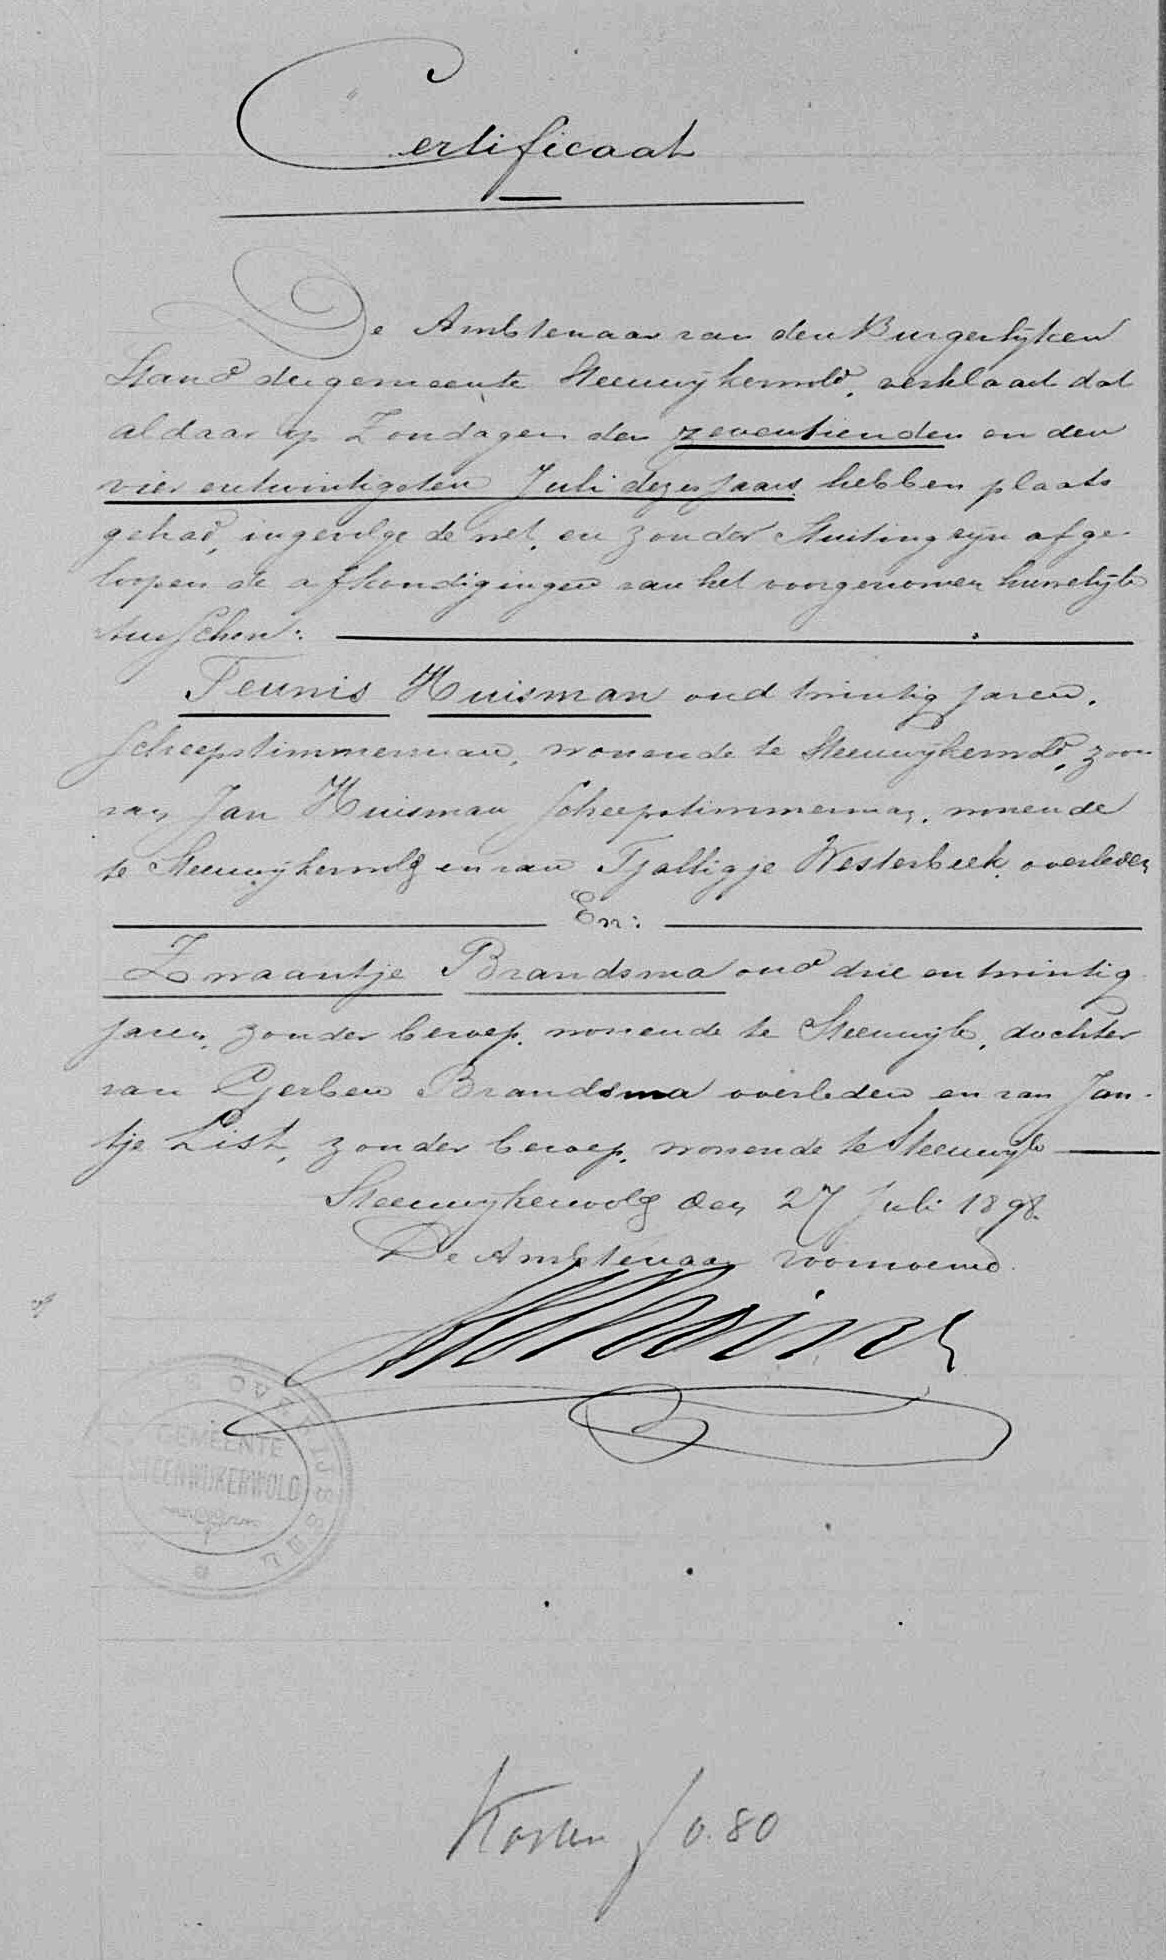 Certificaat
De Ambtenaar van den Burgerlijken
Stand der gemeente Steenwijkerwold, verklaart dat
aldaar op Zondagen den zeventienden en den
vier en twintigsten Juli dezes Jaars hebben plaats
gehad, ingevolge de wet, en zonder Stuiting zijn afge-
loopen de afkondigingen van het voorgenomen huwelijk
tusschen:
Teunis Huisman oud twintig jaren,
Scheepstimmerman, wonende te Steenwijkerwold, zoon
van Jan Huisman Scheepstimmerman, wonende
te Steenwijkerwold en van Tjalligje Westerbeek, overleden
En:
Zwaantje Brandsma oud drie en twintig
jaren, zonder beroep, wonende te Steenwijk, dochter
van Gerben Brandsma overleden en van Jan-
tje List, zonder beroep, wonende te Steenwijk
Steenwijkerwold den 27 Juli 1898.
De Ambtenaar voornoemd.
OVERIJSSEL
GEMEENTE
STEENWIJKERWOLD
Kosten f 0.80